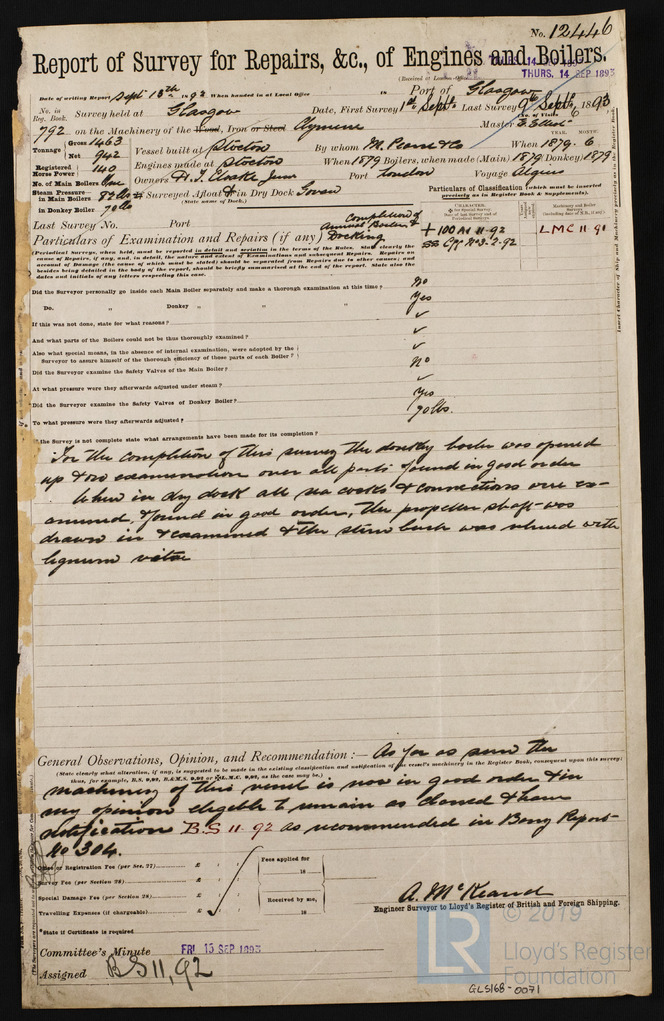 No. 12446
Report of Survey for Repairs, &c., of Engines and Boilers.
(Received at London Office
THURS. 14 SEP 1893
Date of writing Report Sept 13th 1892 When handed in at Local Office 18 Port of Glasgow
No. in Reg. Book. Survey held at Glasgow Date, First Survey 1st Septr. Last Survey 9th Septr. 1893
No. of Visits 6
792 on the Machinery of the Wood, Iron or Steel Clymene Master E. Elliot
Tonnage Gross 1463 Net 942
Vessel built at Stockton By whom M. Pearse & Co When 1879. 6
YEAR. MONTH.
Registered Horse Power 140
Engines made at Stockton When 1879 Boilers, when made (Main) 1879 (Donkey) 1879
No. of Main Boilers One
Owners H. T. Port London Voyage Algiers
Steam Pressure in Main Boilers 82 lbs
in Donkey Boiler 70 lbs
If Surveyed Afloat & in Dry Dock Govan
(State name of Dock.)
Particulars of Classification (which must be inserted precisely as in Register Book & Supplements).
Last Survey No. Port
Completion of Annual Boiler & Docking
Particulars of Examination and Repairs (if any)
+ 100 A1 11-92
SS Cff No 3-2-92
LMC 11 91
(Periodical Surveys, when held, must be reported in detail and seriatim in the terms of the Rules. State clearly the cause of Repairs, if any, and, in detail, the nature and extent of Examinations and subsequent Repairs. Repairs on account of Damage (the cause of which must be stated) should be separated from Repairs due to other causes; and besides being detailed in the body of the report, should be briefly summarised at the end of the report. State also the dates and initials of any letters respecting this case.
Did the Surveyor personally go inside each Main Boiler separately and make a thorough examination at this time? No
Do. " Donkey " " " Yes
If this was not done, state for what reasons?
And what parts of the Boilers could not be thus thoroughly examined?
Also what special means, in the absence of internal examination, were adopted by the Surveyor to assure himself of the thorough efficiency of those parts of each Boiler?
Did the Surveyor examine the Safety Valves of the Main Boiler? No
At what pressure were they afterwards adjusted under steam?
Did the Surveyor examine the Safety Valves of Donkey Boiler? Yes
To what pressure were they afterwards adjusted? 70 lbs.
If the Survey is not complete state what arrangements have been made for its completion?
For the completion of this survey the donkey boiler was opened
up & on examination over all parts found in good order
When in dry dock all sea cocks & connections were ex-
amined, & found in good order, the propeller shaft was
drawn in & examined & the stern bush was relined with
lignum vitae
General Observations, Opinion, and Recommendation :— As far as seen the
(State clearly what alteration, if any, is suggested to be made in the existing classification and notification of the vessel's machinery in the Register Book, consequent upon this survey; thus, for example, B.S. 9,92, B.&M.S. 9,91 or L.M.C. 9,91, as the case may be.)
machinery of this vessel is now in good order & in
my opinion eligible to remain as classed & have
notification B.S 11 92 as recommended in Barry Report
No 304.
Office or Registration Fee (per Sec. 27) £
Survey Fee (per Section 28) £
Special Damage Fee (per Section 28) £
Travelling Expenses (if chargeable) £
Fees applied for
18
Received by me,
18
A. McKeand
Engineer Surveyor to Lloyd's Register of British and Foreign Shipping.
*State if Certificate is required
Committee's Minute FRI 15 SEP 1893
Assigned BS 11,92
© 2019
LR
Lloyd's Register
Foundation
GLS168-0071